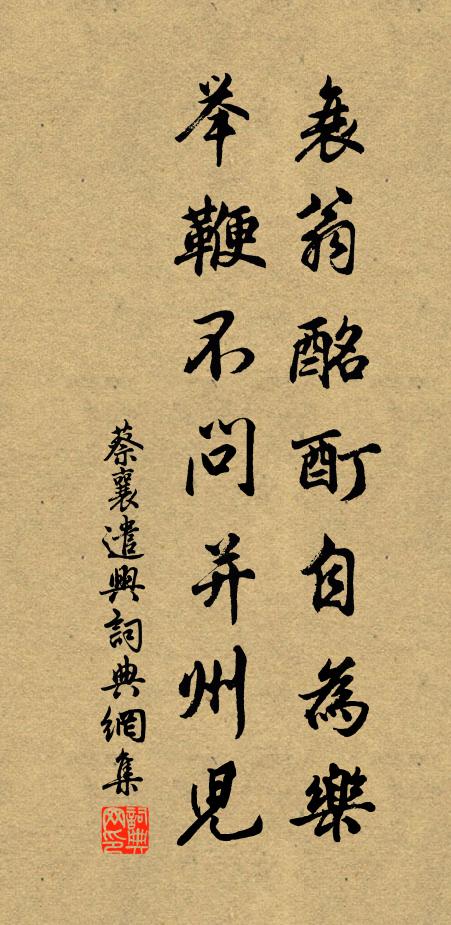 衰翁酩酊自為樂
举鞭不問并州兒
蔡襄遣興詞典網集
詞典网印